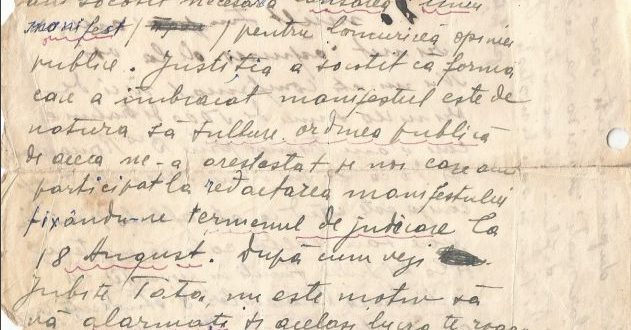 am socotit necesară lansarea unui
manifest / / pentru lămurirea opiniei
publice. Justiția a socotit că forma
care a îmbrăcat manifestul este de
natură să tulbure ordinea publică
de aceea ne-a arestat pe noi care am
participat la redactarea manifestului
fixându-ne termenul de judecare la
18 August. După cum vezi
Iubite Tată, nu este motiv să
vă alarmați și același lucru te rog